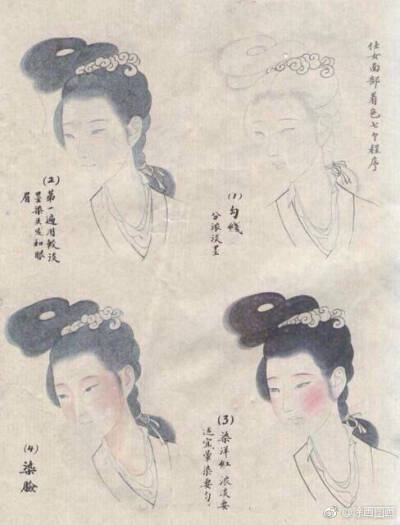 仕女面部着色七个程序
(1) 勾线
分浓淡墨
(2) 第一遍用较淡
墨染头发和眼
眉
(3) 染洋红 浓淡要
适宜晕染要匀.
(4) 染脸